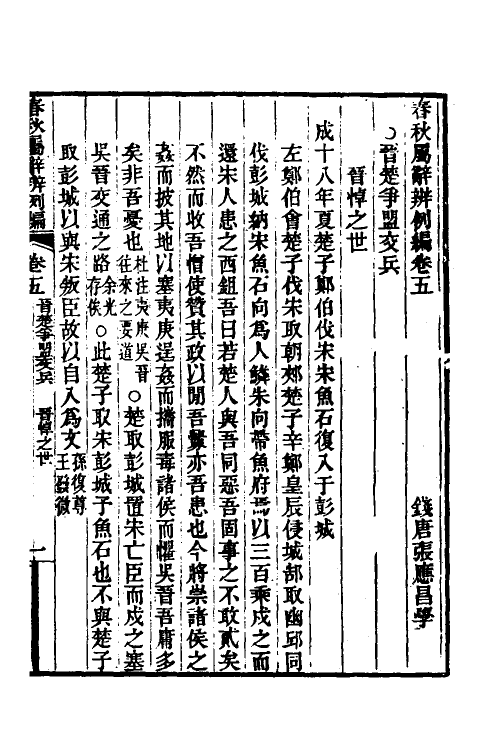 春秋屬辭辨例編卷五
錢唐張應昌學
○晉楚爭盟交兵
晉悼之世
成十八年夏楚子鄭伯伐宋宋魚石復入于彭城
左鄭伯會楚子伐宋取朝郟楚子辛鄭皇辰侵城郜取幽邱同
伐彭城納宋魚石向爲人鱗朱向帶魚府焉以三百乘戍之而
還宋人患之西鉏吾曰若楚人與吾同惡吾固事之不敢貳矣
不然而收吾憎使贊其政以閒吾釁亦吾患也今將崇諸侯之
姦而披其地以塞夷庚逞姦而攜服毒諸侯而懼吳晉吾庸多
矣非吾憂也杜注夷庚吳晉往來之要道○楚取彭城置宋亡臣而戍之塞
吳晉交通之路余光存俟○此楚子取宋彭城予魚石也不與楚子
取彭城以與宋叛臣故以自入爲文孫復尊王發微
春秋屬辭辨例編
卷五
晉楚爭盟交兵
晉悼之世
一